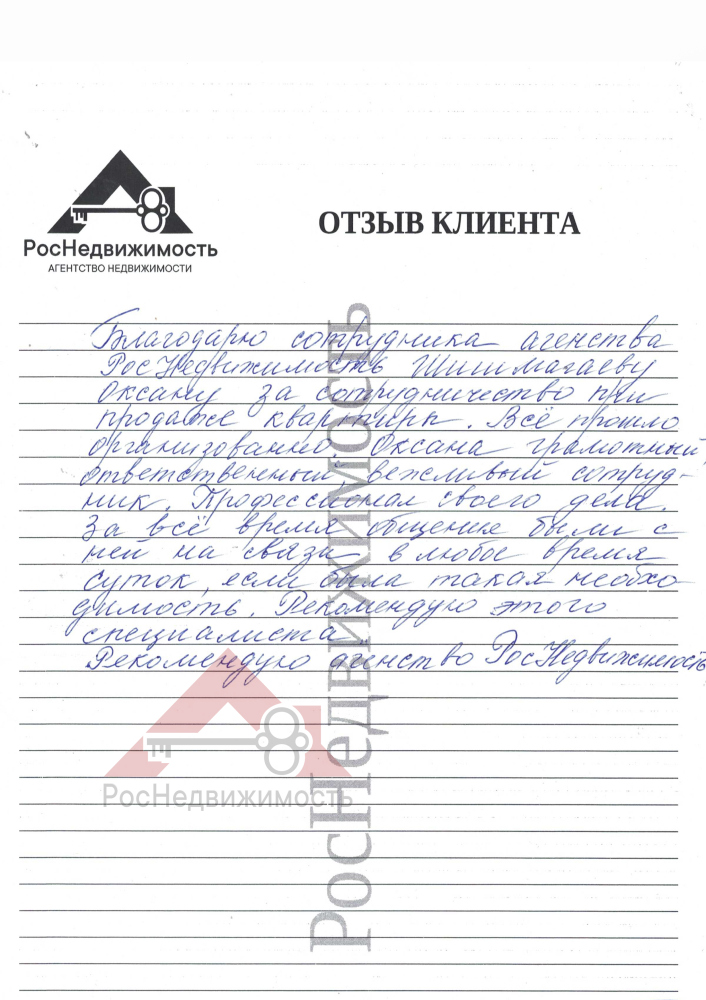 РосНедвижимость
АГЕНТСТВО НЕДВИЖИМОСТИ
ОТЗЫВ КЛИЕНТА
Благодарю сотрудника агенства
РосНедвижимость Шишмагаеву
Оксану за сотрудничество при
продаже квартиры. Всё прошло
организованно. Оксана грамотный,
ответственный, вежливый сотруд-
ник. Профессионал своего дела.
За всё время общения были с
ней на связи в любое время
суток, если была такая необхо-
димость. Рекомендую этого
специалиста.
Рекомендую агенство РосНедвижимость
РосНедвижимость
РосНедвижимость